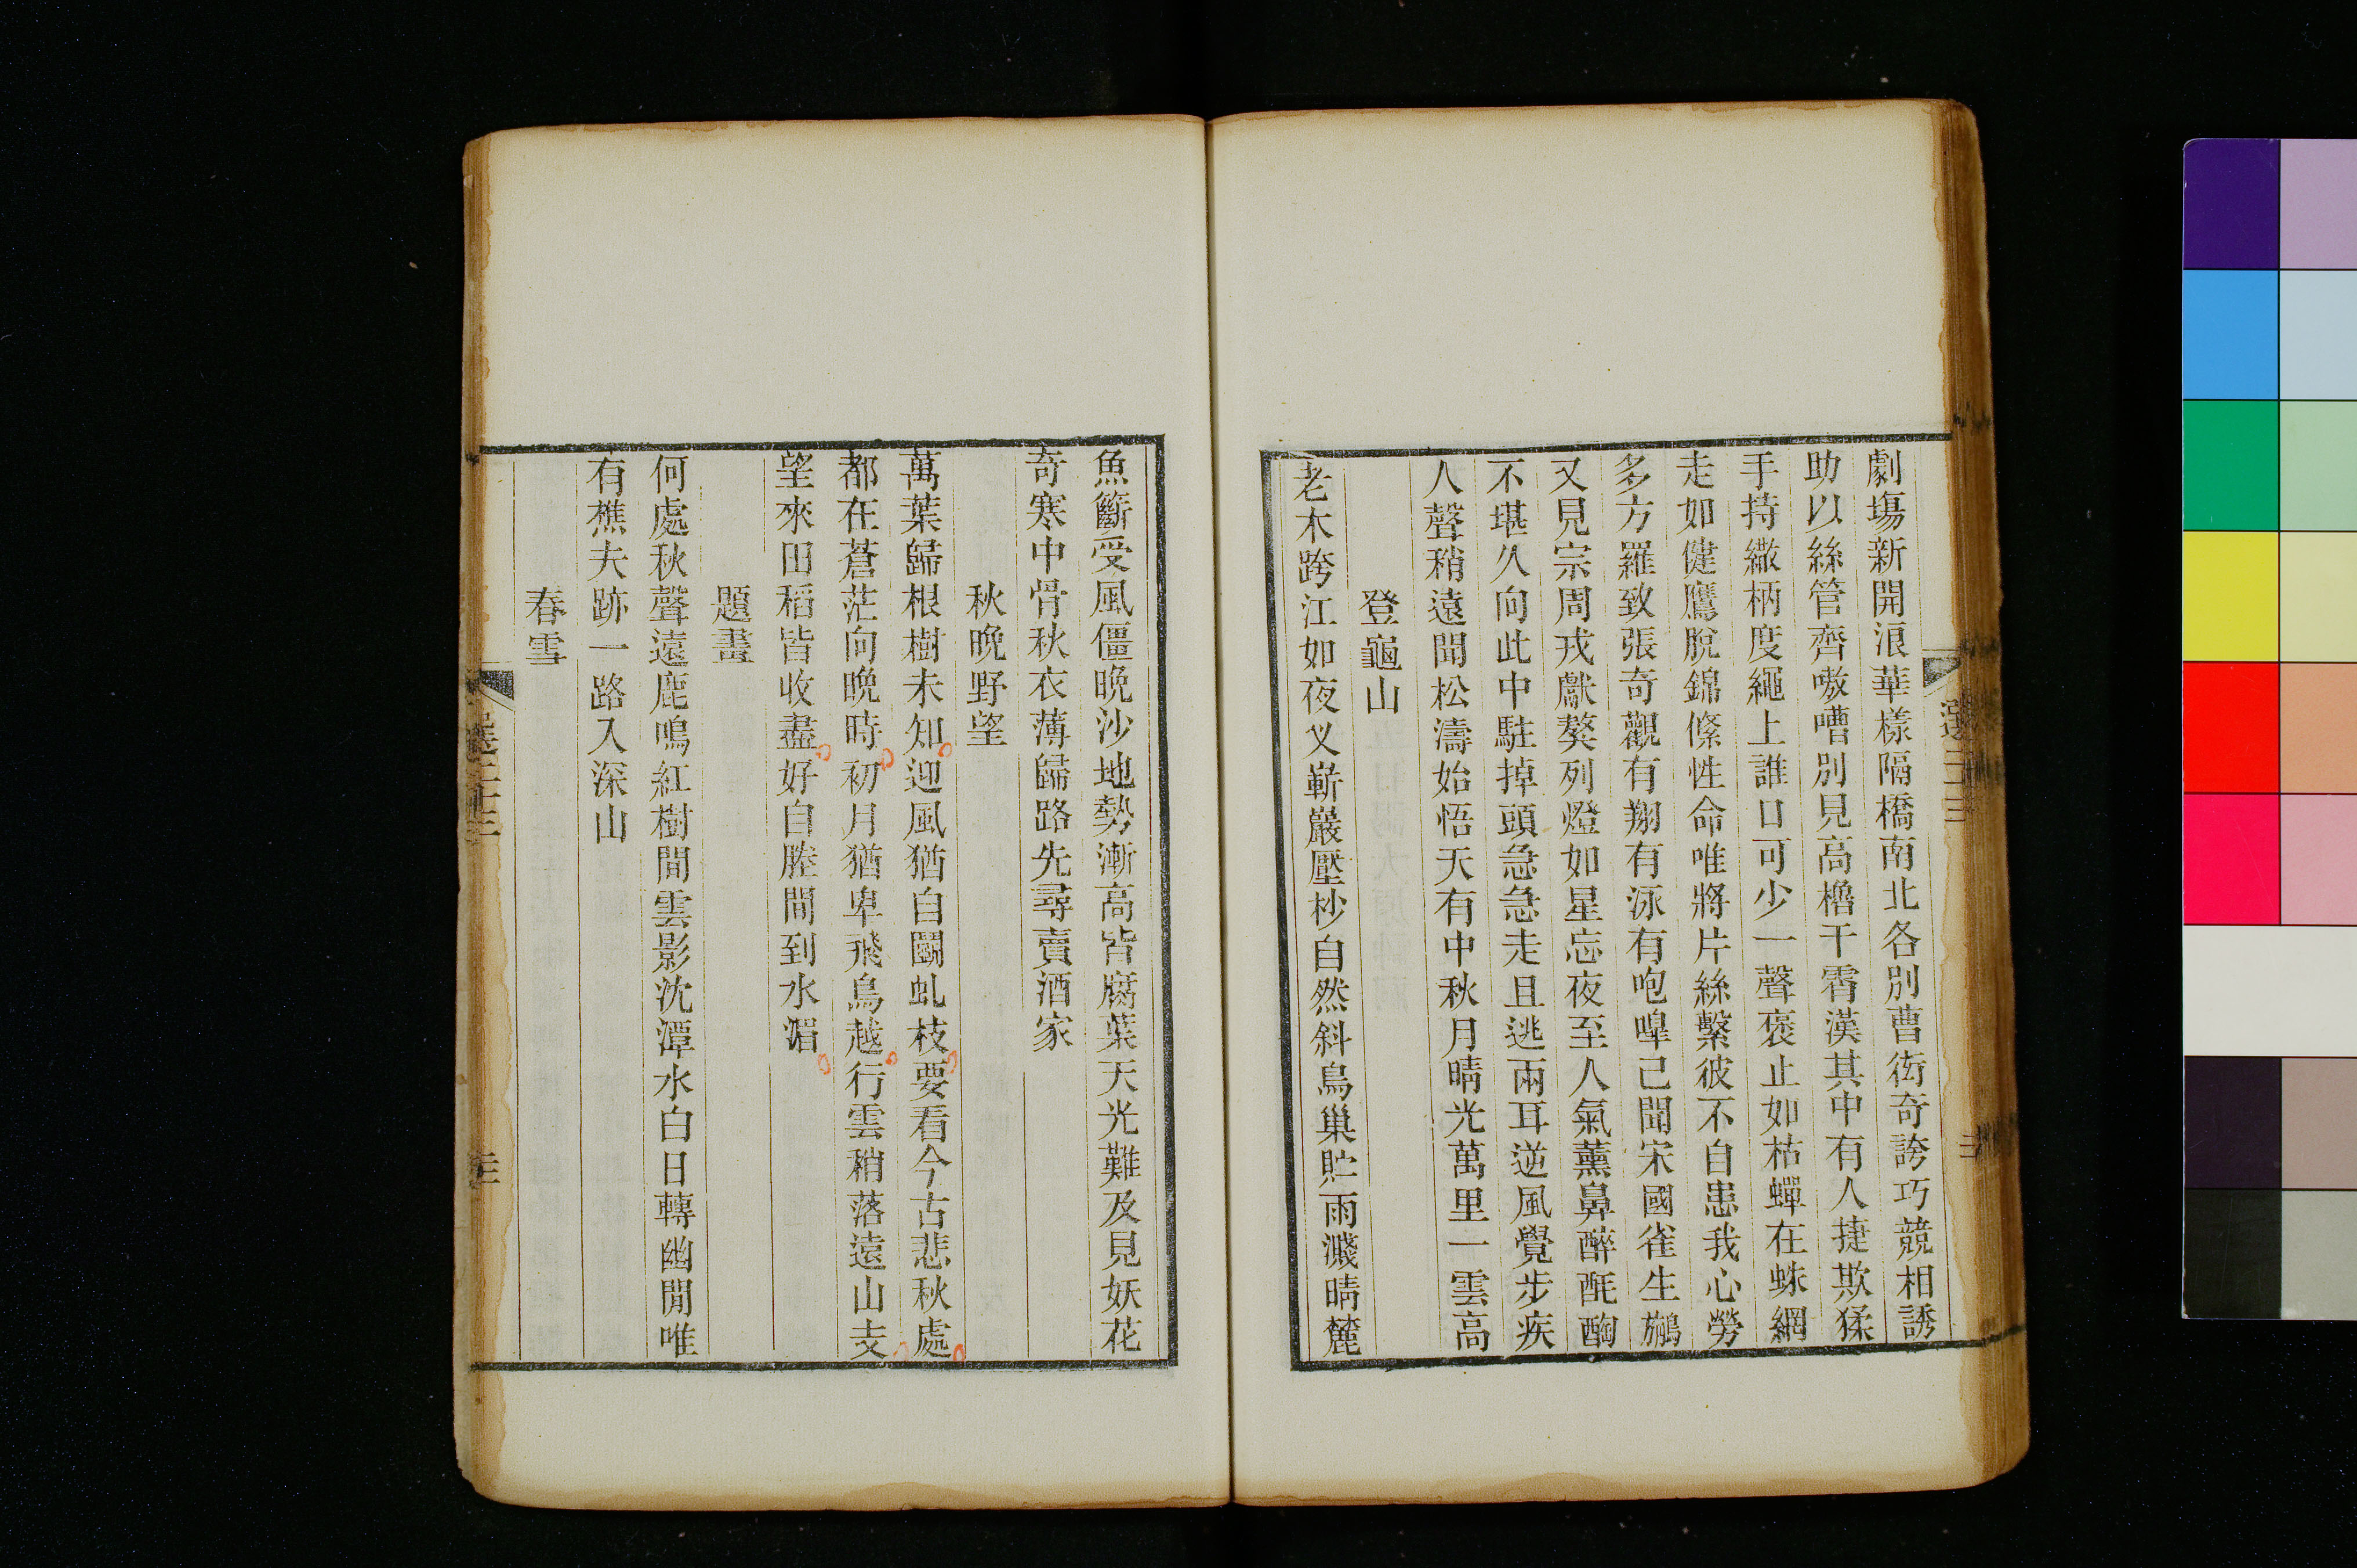 劇塲新開浪華樣隔橋南北各別曹衒奇誇巧競相誘
助以絲管齊嗷嘈別見高櫓干霄漢其中有人捷欺猱
手持繖柄度繩上誰口可少一聲褒止如枯蟬在蛛網
走如健鷹脫錦絛性命唯將片絲繫彼不自患我心勞
多方羅致張奇觀有翔有泳有咆嘷己聞宋國雀生鸇
又見宗周戎獻獒列燈如星忘夜至人氣薰鼻醉酕醄
不堪久向此中駐掉頭急急走且逃兩耳逆風覺步疾
人聲稍遠聞松濤始悟天有中秋月晴光萬里一雲高
登龜山
老木跨江如夜叉嶄巖壓杪自然斜鳥巢貯雨濺晴麓
魚籪受風僵晚沙地勢漸高皆腐葉天光難及見妖花
奇寒中骨秋衣薄歸路先尋賣酒家
秋晚野望
萬葉歸根樹未知迎風猶自鬭虬枝要看今古悲秋處
都在蒼茫向晩時初月猶卑飛鳥越行雲稍落遠山支
望來田稻皆收盡好自塍間到水湄
題畫
何處秋聲遠鹿鳴紅樹間雲影沈潭水白日轉幽閒唯
有樵夫跡一路入深山
春雪